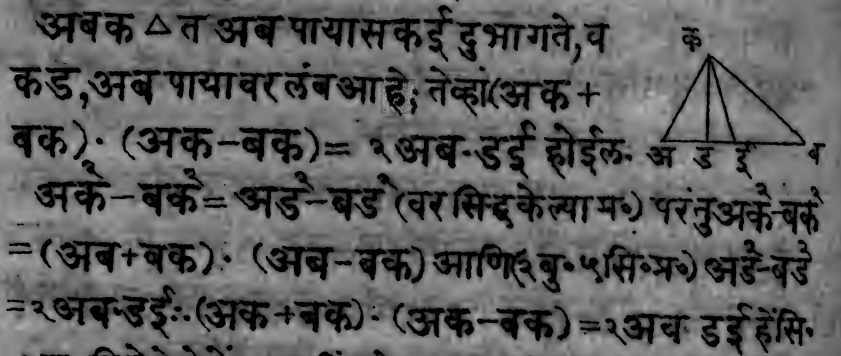 अबक △ त अब पायास कई दुभागते, व
कड, अब पायावर लंब आहे; तेव्हां (अक +
बक)· (अक-बक)= २अब·डई होईल.
अक²-बक²= अड²-बड² (वर सिद्ध केल्या म॰) परंतु अक²-बक²
=(अब+बक)· (अब-बक) आणि (२बु॰५सि॰प्र॰) अड²-बड²
=२अब·डई∴(अक+बक)·(अक-बक)=२अब·डई हें सि·
क
अ ड ई ब